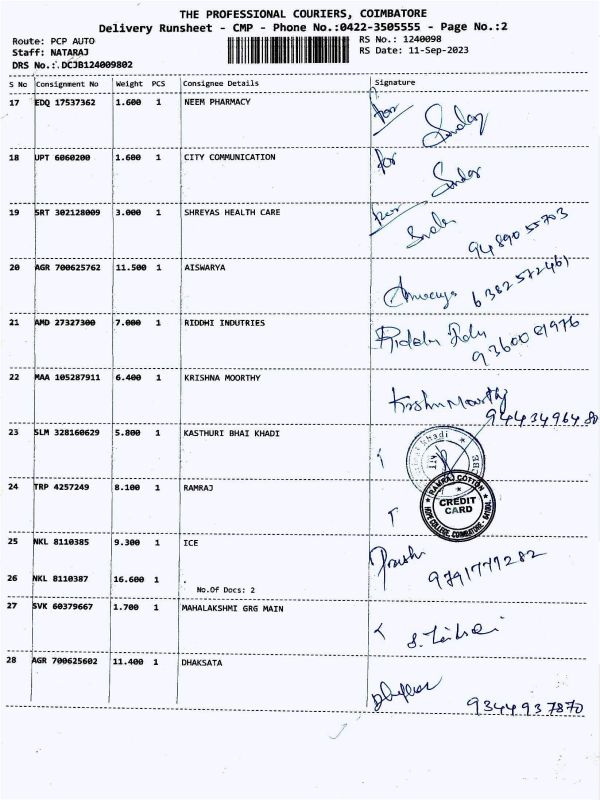 THE PROFESSIONAL COURIERS, COIMBATORE
Delivery Runsheet - CMP - Phone No.:0422-3505555 - Page No.:2
Route: PCP AUTO RS No.: 1240098
Staff: NATARAJ RS Date: 11-Sep-2023
DRS No.: DCJB124009802
S No Consignment No Weight PCS Consignee Details Signature
17 EDQ 17537362 1.600 1 NEEM PHARMACY for
18 UPT 6060200 1.600 1 CITY COMMUNICATION for
19 SRT 302128009 3.000 1 SHREYAS HEALTH CARE for
94890 55703
20 AGR 700625762 11.500 1 AISWARYA
6382572461
21 AMD 27327300 7.000 1 RIDDHI INDUTRIES
93600 01976
22 MAA 105287911 6.400 1 KRISHNA MOORTHY
Krishna Moorthy
9443496480
23 SLM 328160629 5.800 1 KASTHURI BHAI KHADI
24 TRP 4257249 8.100 1 RAMRAJ
RAMRAJ COTTON
CREDIT
CARD
HOPE COLLEGE, COIMBATORE
25 NKL 8110385 9.300 1 ICE
9791779282
26 NKL 8110387 16.600 1
No.Of Docs: 2
27 SVK 60379667 1.700 1 MAHALAKSHMI GRG MAIN
28 AGR 700625602 11.400 1 DHAKSATA
9344937870